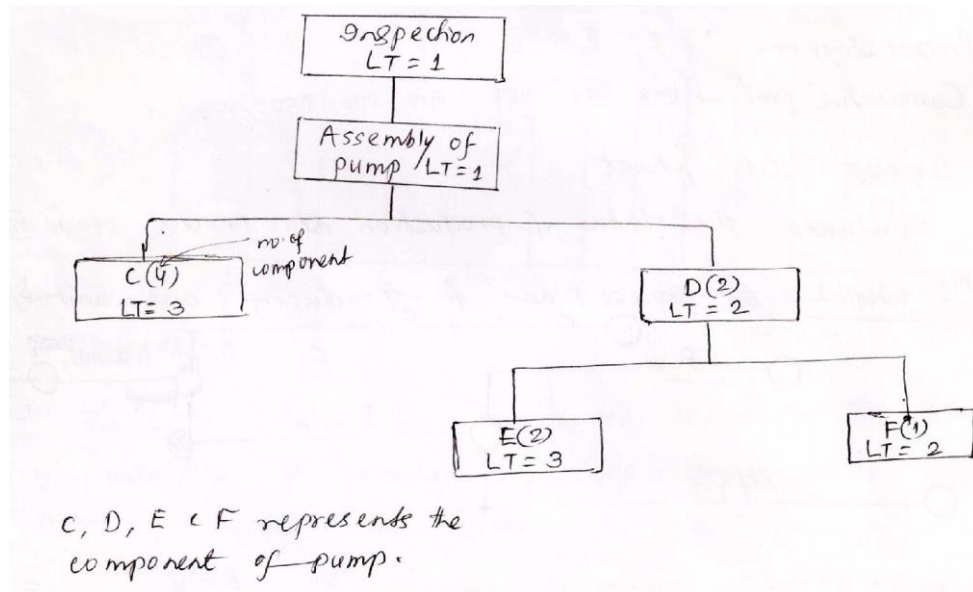 Inspection
LT = 1
Assembly of
pump LT=1
no. of
component
C (4)
LT= 3
D(2)
LT = 2
E(2)
LT = 3
F(1)
LT = 2
C, D, E & F represents the
component of pump.